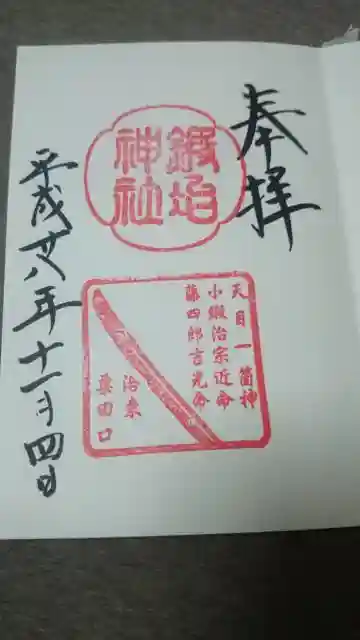 奉拝
鍛冶
神社
天目一箇神
小鍛治宗近命
藤四郎吉光命
治東
粟田口
平成廿八年十一月四日